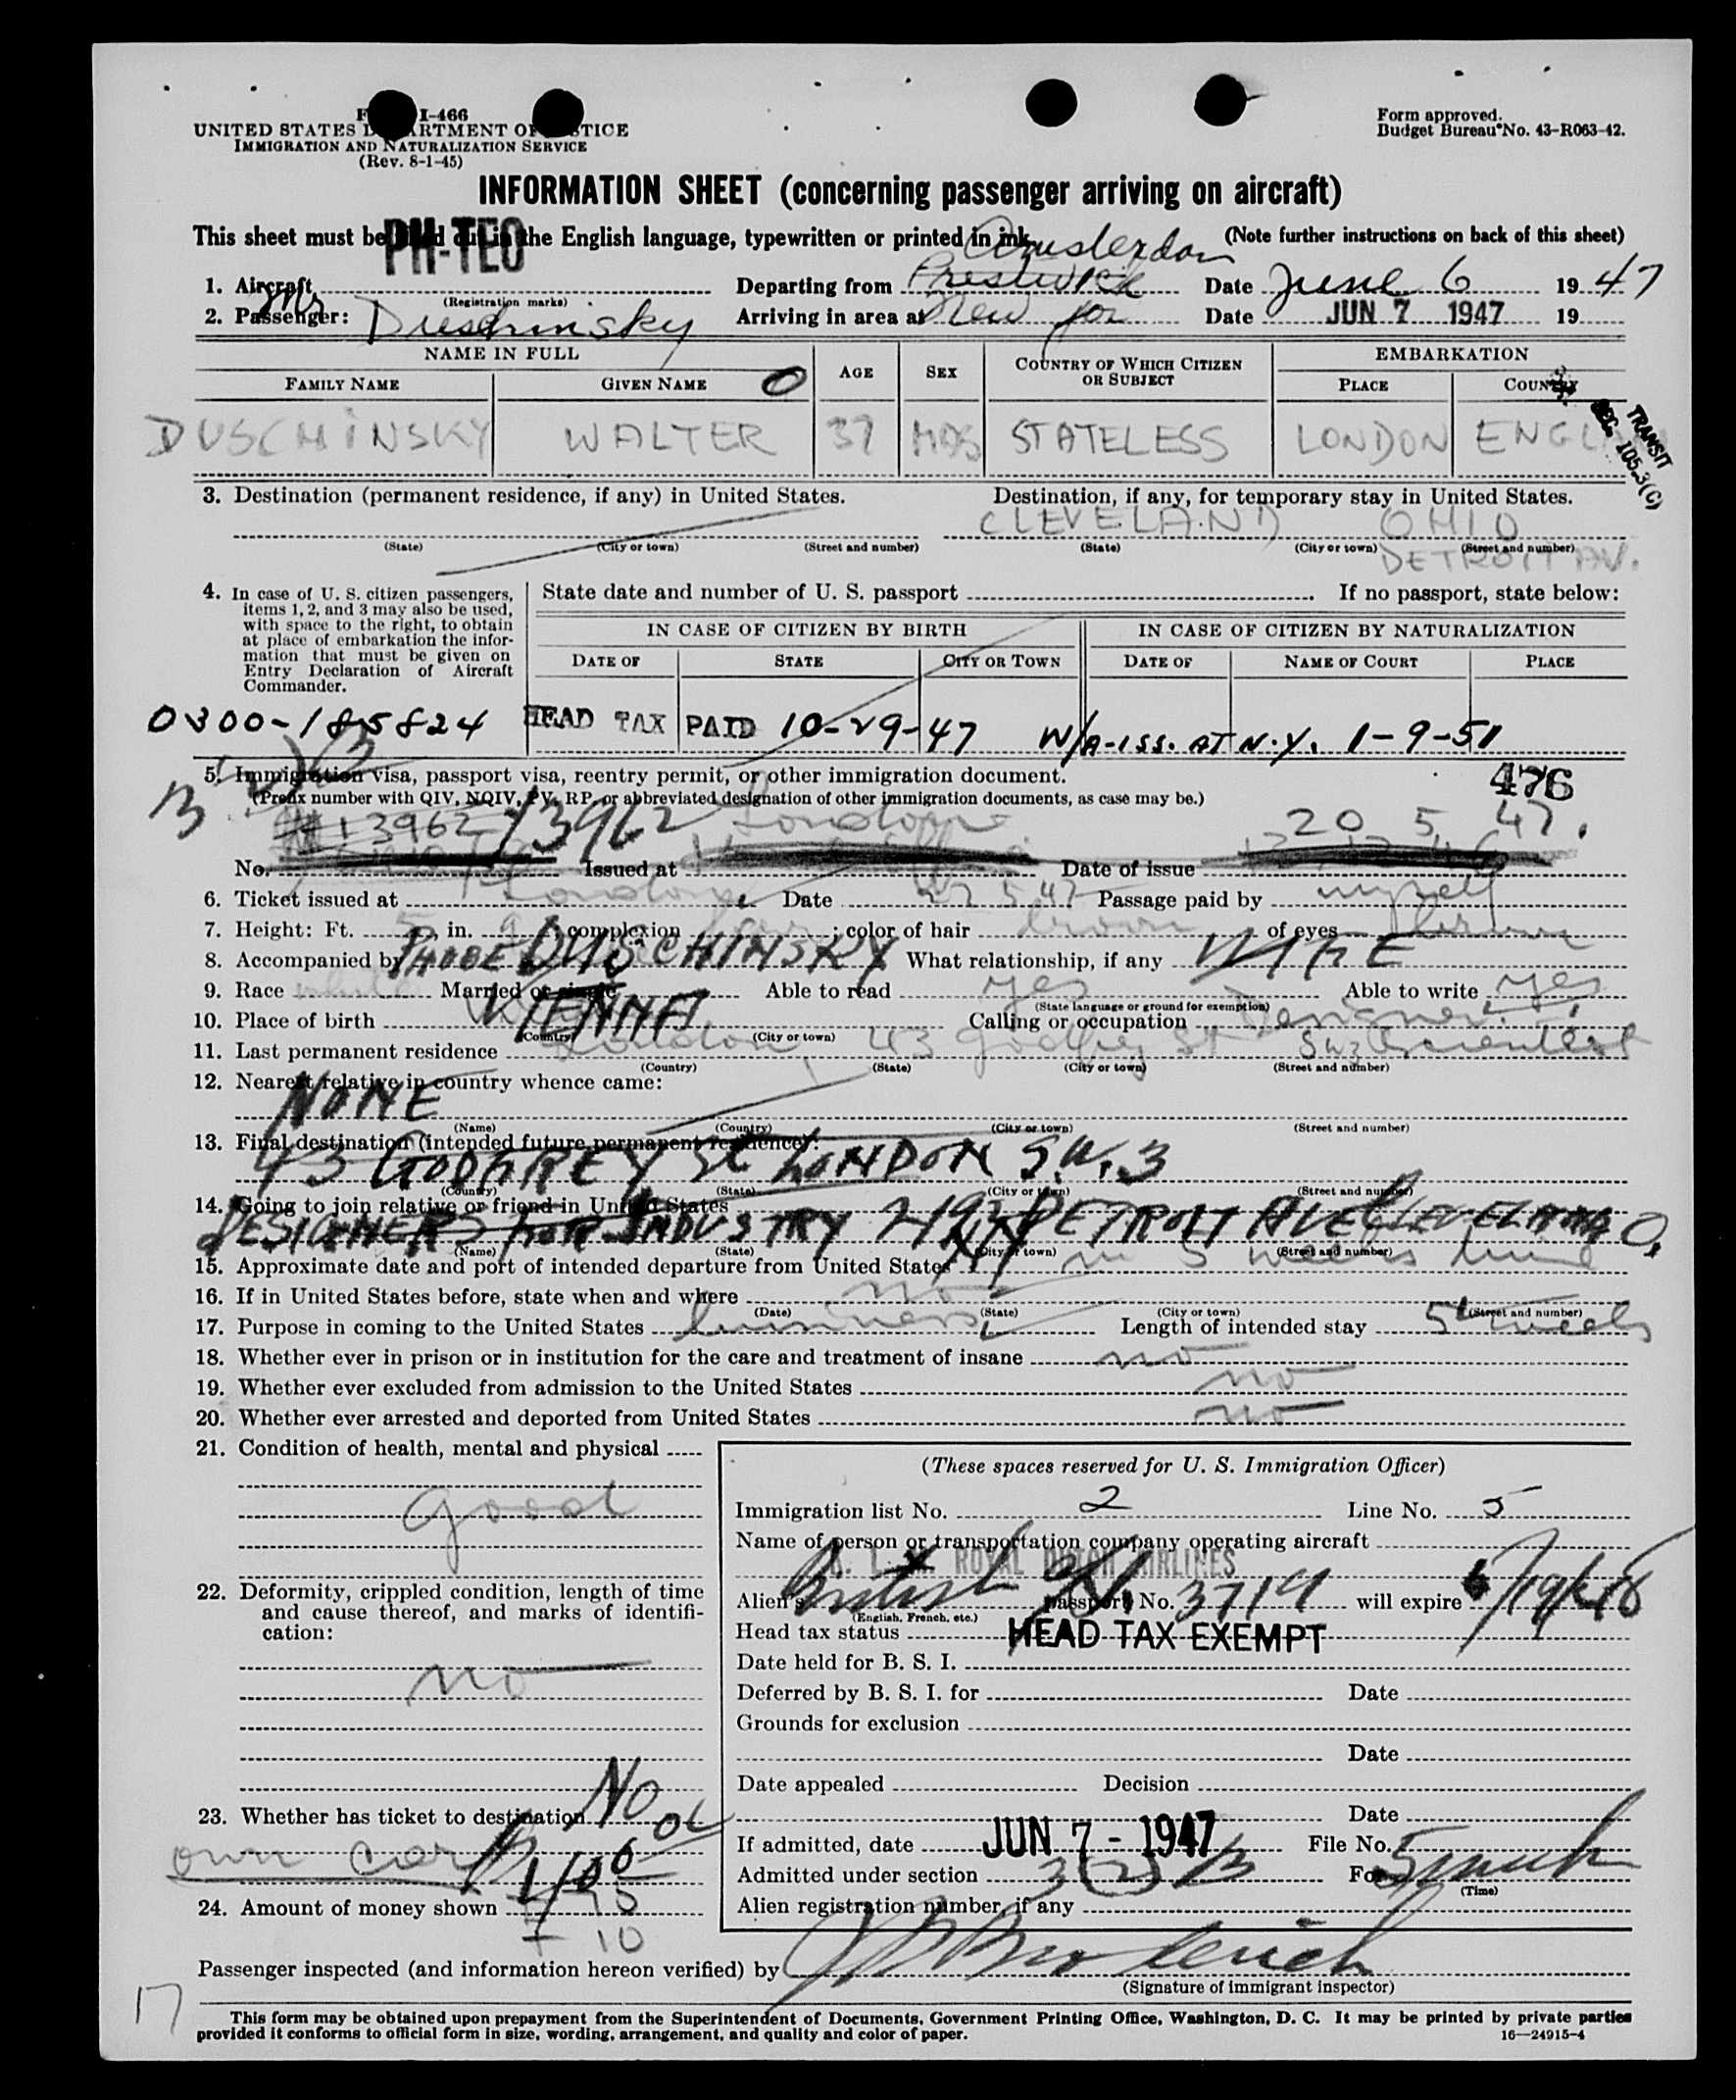 I-466
UNITED STATES DEPARTMENT OF JUSTICE
IMMIGRATION AND NATURALIZATION SERVICE
(Rev. 8-1-45)
Form approved.
Budget Bureau No. 43-R063-42.
INFORMATION SHEET (concerning passenger arriving on aircraft)
This sheet must be filled out in the English language, typewritten or printed in ink. (Note further instructions on back of this sheet)
PH-TEO
Amsterdam
1. Aircraft (Registration marks) Departing from Prestwick Date June 6 1947
2. Passenger: Mr Duschinsky Arriving in area at New Yor Date JUN 7 1947 19
NAME IN FULL AGE SEX COUNTRY OF WHICH CITIZEN OR SUBJECT EMBARKATION
FAMILY NAME GIVEN NAME O PLACE COUNTRY
DUSCHINSKY WALTER 37 MAS STATELESS LONDON ENGL
TRANSIT
SEC. 105.3(C)
3. Destination (permanent residence, if any) in United States. Destination, if any, for temporary stay in United States.
CLEVELAND OHIO
(State) (City or town) (Street and number) (State) (City or town) (Street and number)
DETROIT AV.
4. In case of U. S. citizen passengers, items 1, 2, and 3 may also be used, with space to the right, to obtain at place of embarkation the information that must be given on Entry Declaration of Aircraft Commander.
State date and number of U. S. passport If no passport, state below:
IN CASE OF CITIZEN BY BIRTH IN CASE OF CITIZEN BY NATURALIZATION
DATE OF STATE CITY OR TOWN DATE OF NAME OF COURT PLACE
0300-185824 HEAD TAX PAID 10-29-47 W/A-ISS. AT N.Y. 1-9-51
5. Immigration visa, passport visa, reentry permit, or other immigration document. 476
(Prefix number with QIV, NQIV, PV, RP, or abbreviated designation of other immigration documents, as case may be.)
13962 13962 London 20 5 47.
No. Issued at Date of issue
6. Ticket issued at London Date 22 5 47 Passage paid by myself
7. Height: Ft. 5, in. 9; complexion fair; color of hair brown of eyes brown
8. Accompanied by PHOBE DUSCHINSKY What relationship, if any WIFE
9. Race white Married or single Able to read yes Able to write yes
(State language or ground for exemption)
10. Place of birth VIENNA Calling or occupation Designer
(Country) (City or town)
11. Last permanent residence London 43 Godfrey St SW3
(Country) (State) (City or town) (Street and number)
12. Nearest relative in country whence came:
NONE
(Name) (Country) (City or town) (Street and number)
13. Final destination (intended future permanent residence):
43 GODFREY St LONDON S.W.3
(Country) (State) (City or town) (Street and number)
14. Going to join relative or friend in United States
DESIGNERS FOR INDUSTRY DETROIT AVE CLEVELAND O.
(Name) (State) (City or town) (Street and number)
15. Approximate date and port of intended departure from United States in 5 weeks time
16. If in United States before, state when and where no
(Date) (State) (City or town) (Street and number)
17. Purpose in coming to the United States business Length of intended stay 5 weeks
18. Whether ever in prison or in institution for the care and treatment of insane no
19. Whether ever excluded from admission to the United States no
20. Whether ever arrested and deported from United States no
21. Condition of health, mental and physical
good
22. Deformity, crippled condition, length of time and cause thereof, and marks of identification:
no
23. Whether has ticket to destination No
own car
24. Amount of money shown
10
(These spaces reserved for U. S. Immigration Officer)
Immigration list No. 2 Line No. 5
Name of person or transportation company operating aircraft
K. L. M. ROYAL DUTCH AIRLINES
Alien's British passport No. 3714 will expire 6/19/48
(English, French, etc.)
Head tax status HEAD TAX EXEMPT
Date held for B. S. I.
Deferred by B. S. I. for Date
Grounds for exclusion
Date
Date appealed Decision
Date
If admitted, date JUN 7 - 1947 File No.
Admitted under section 3(2) B For 5 mnth
(Time)
Alien registration number, if any
Passenger inspected (and information hereon verified) by
(Signature of immigrant inspector)
17
This form may be obtained upon prepayment from the Superintendent of Documents, Government Printing Office, Washington, D. C. It may be printed by private parties
provided it conforms to official form in size, wording, arrangement, and quality and color of paper. 16—24915-4